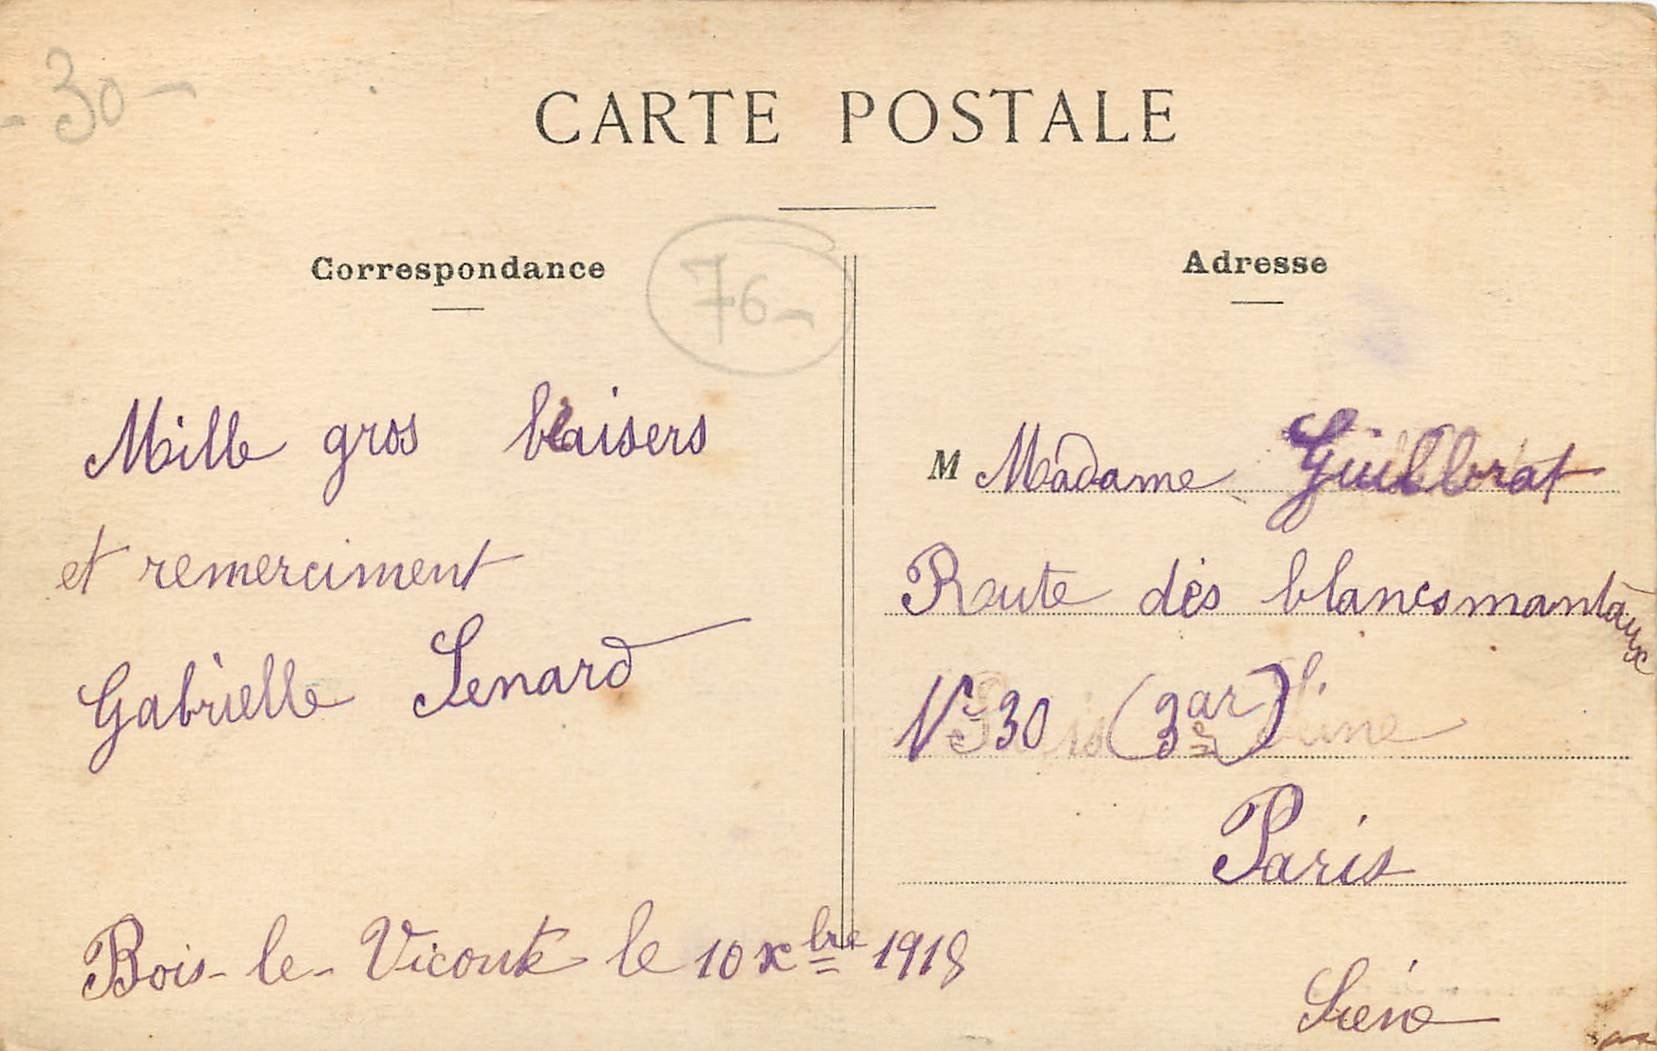 - 30 -
CARTE POSTALE
Correspondance
76-
Adresse
Mille gros baisers
et remerciment
Gabrielle Lenard
Bois-le-Vicomte le 10 Xbre 1918
M Madame
Route dès blancsmantaux
N° 30 (3 ar)
Paris